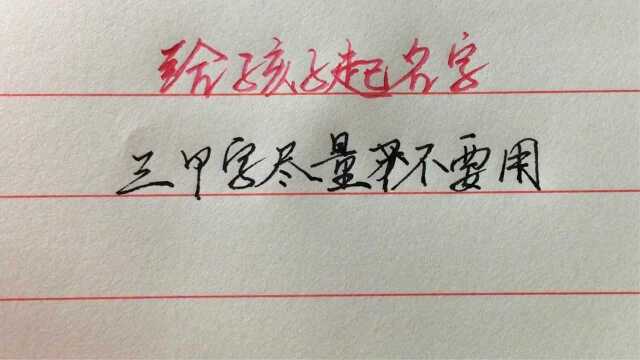 给孩子起名字
三甲字尽量不要用